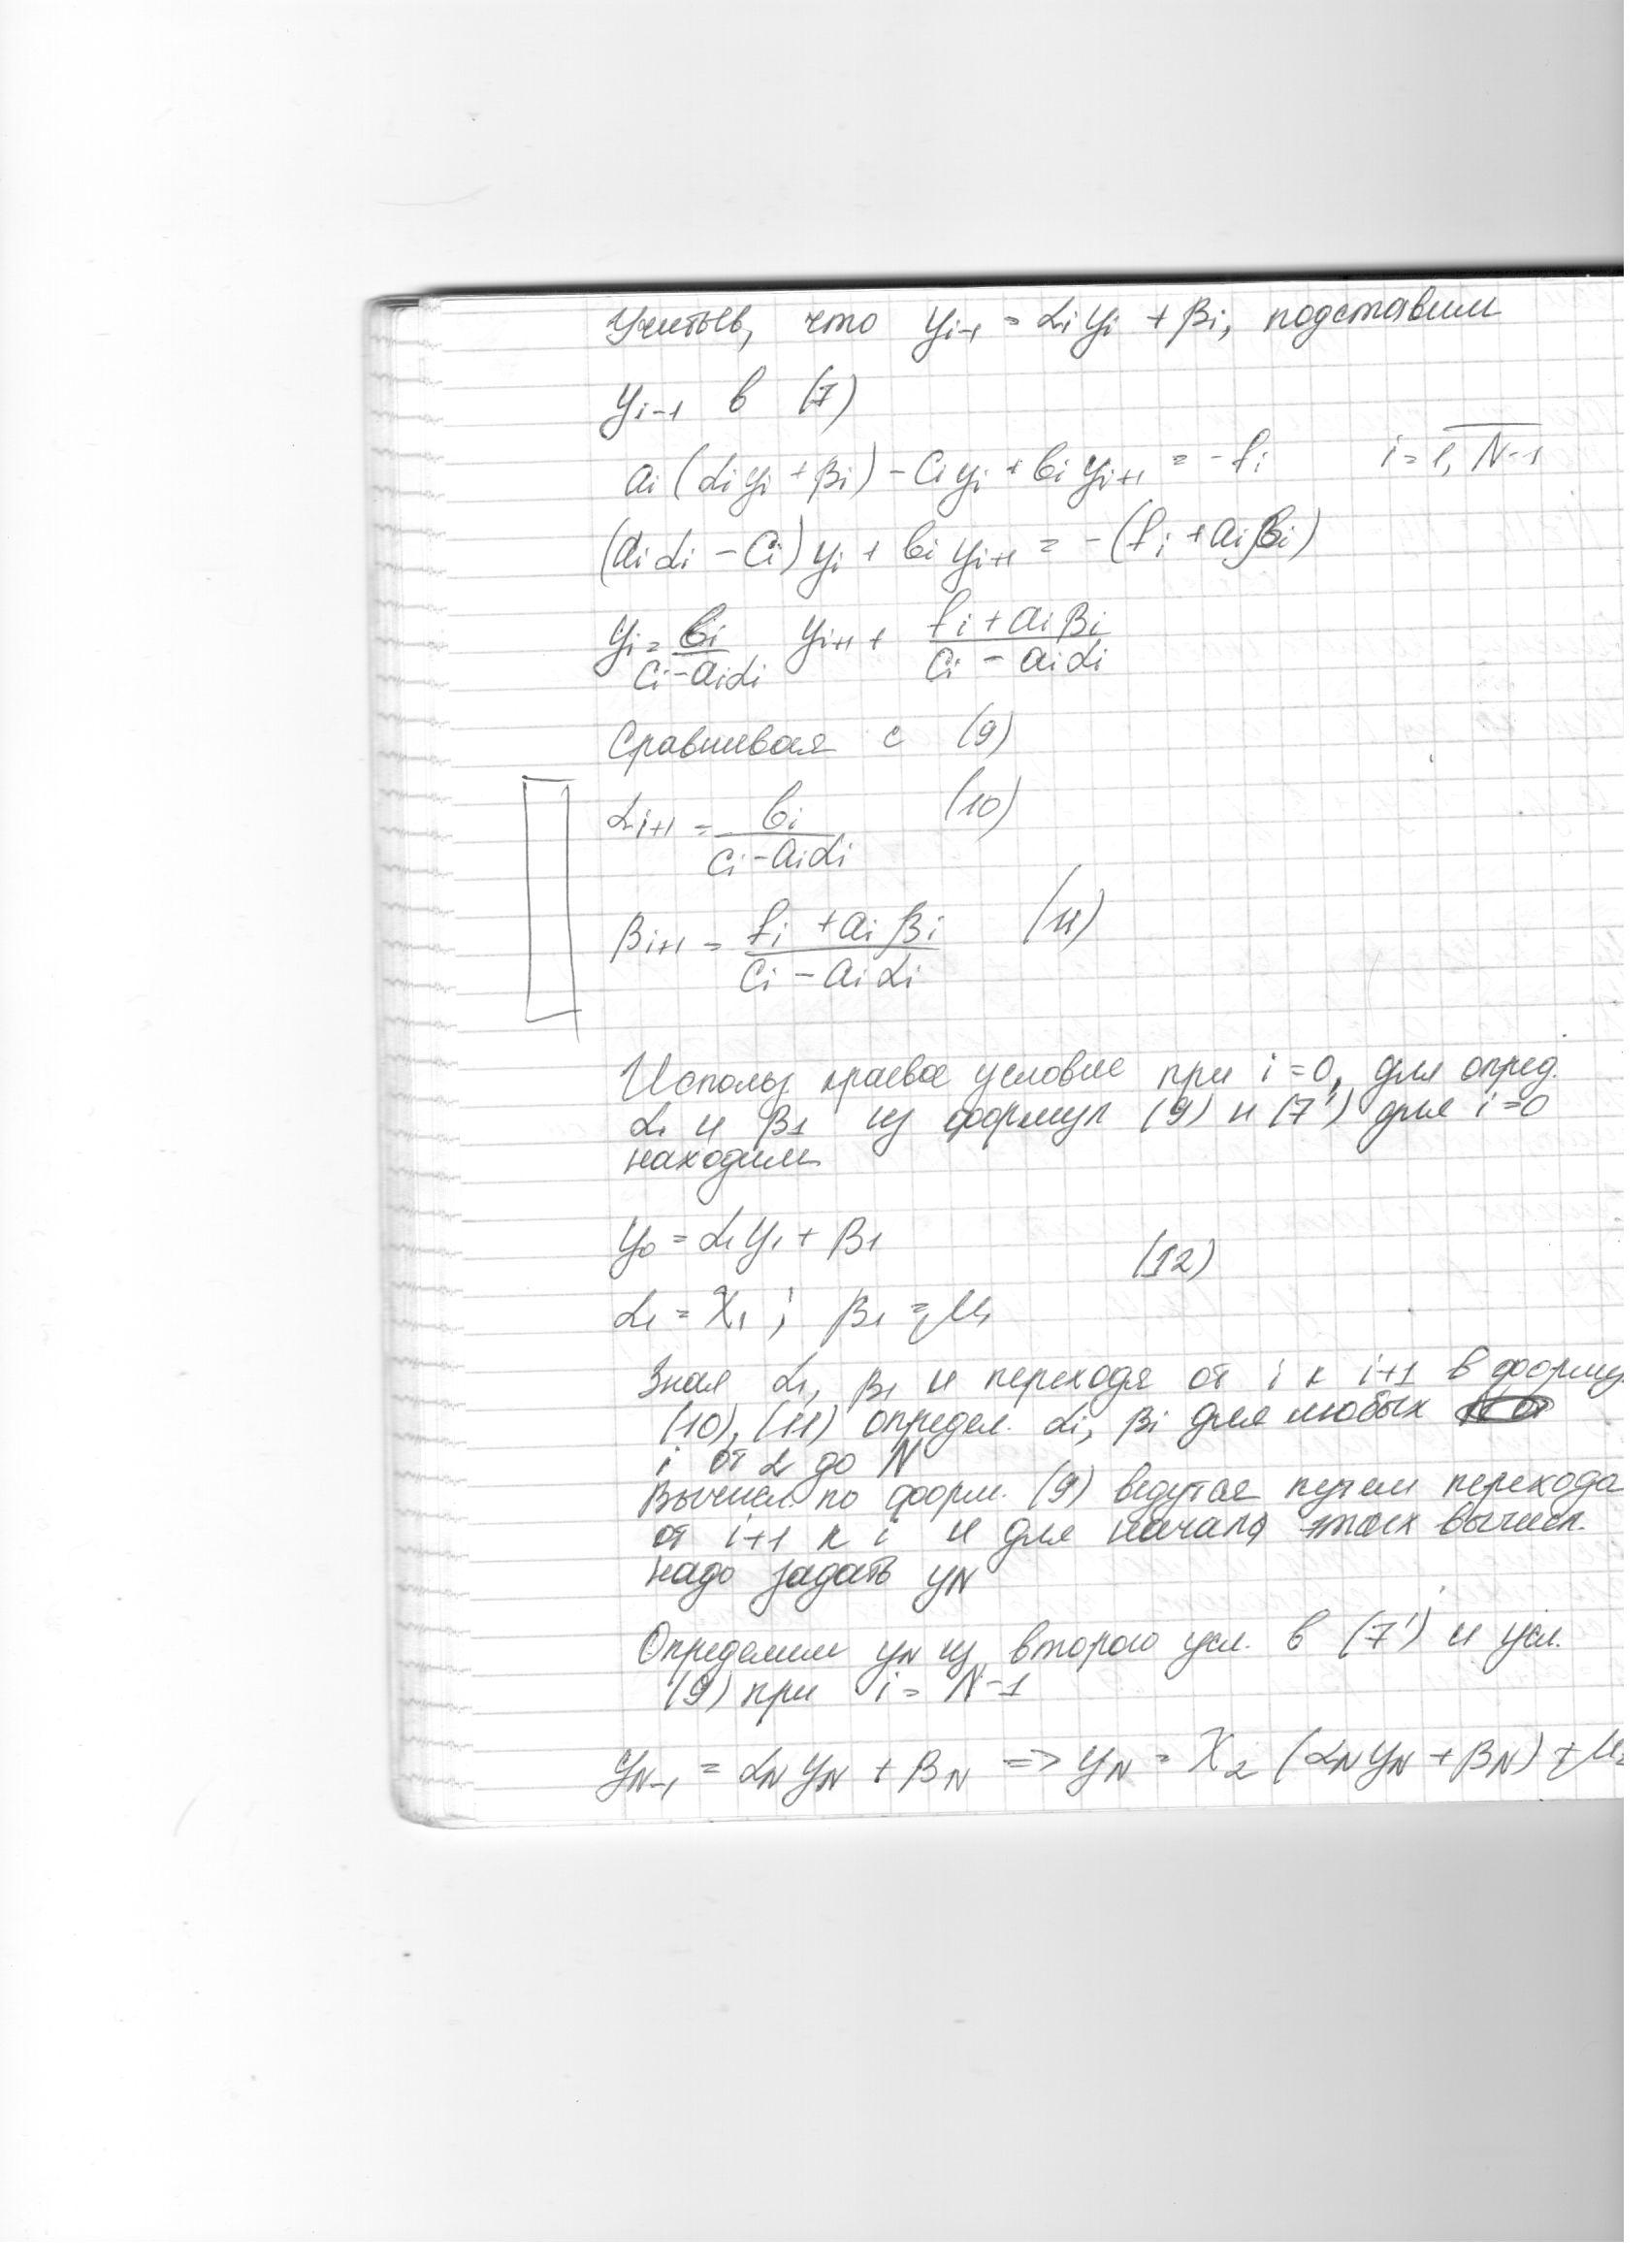 Учитыв, что yi-1 = αi yi + βi, подставим
yi-1 в (7)
ai(αi yi + βi) - ci yi + bi yi+1 = -fi i = 1, N-1
(ai αi - ci) yi + bi yi+1 = -(fi + ai βi)
yi = bi / (ci - ai αi) yi+1 + (fi + ai βi) / (ci - ai αi)
Сравнивая с (9)
αi+1 = bi / (ci - ai αi) (10)
βi+1 = (fi + ai βi) / (ci - ai αi) (11)
Использ. краевое условие при i = 0, для опред.
α1 и β1 из формул (9) и (7') для i = 0
находим
y0 = α1 y1 + β1
(12)
α1 = χ1 ; β1 = μ1
Зная α1, β1 и переходя от i к i+1 в форму
(10), (11) определ. αi, βi для любых
i от 2 до N
Вычисл. по форм. (9) ведутся путем перехода
от i+1 к i и для начала этих вычисл.
надо задать yN
Определим yN из второго усл. в (7') и усл.
(9) при i = N-1
yN-1 = αN yN + βN => yN = χ2 (αN yN + βN) + μ2